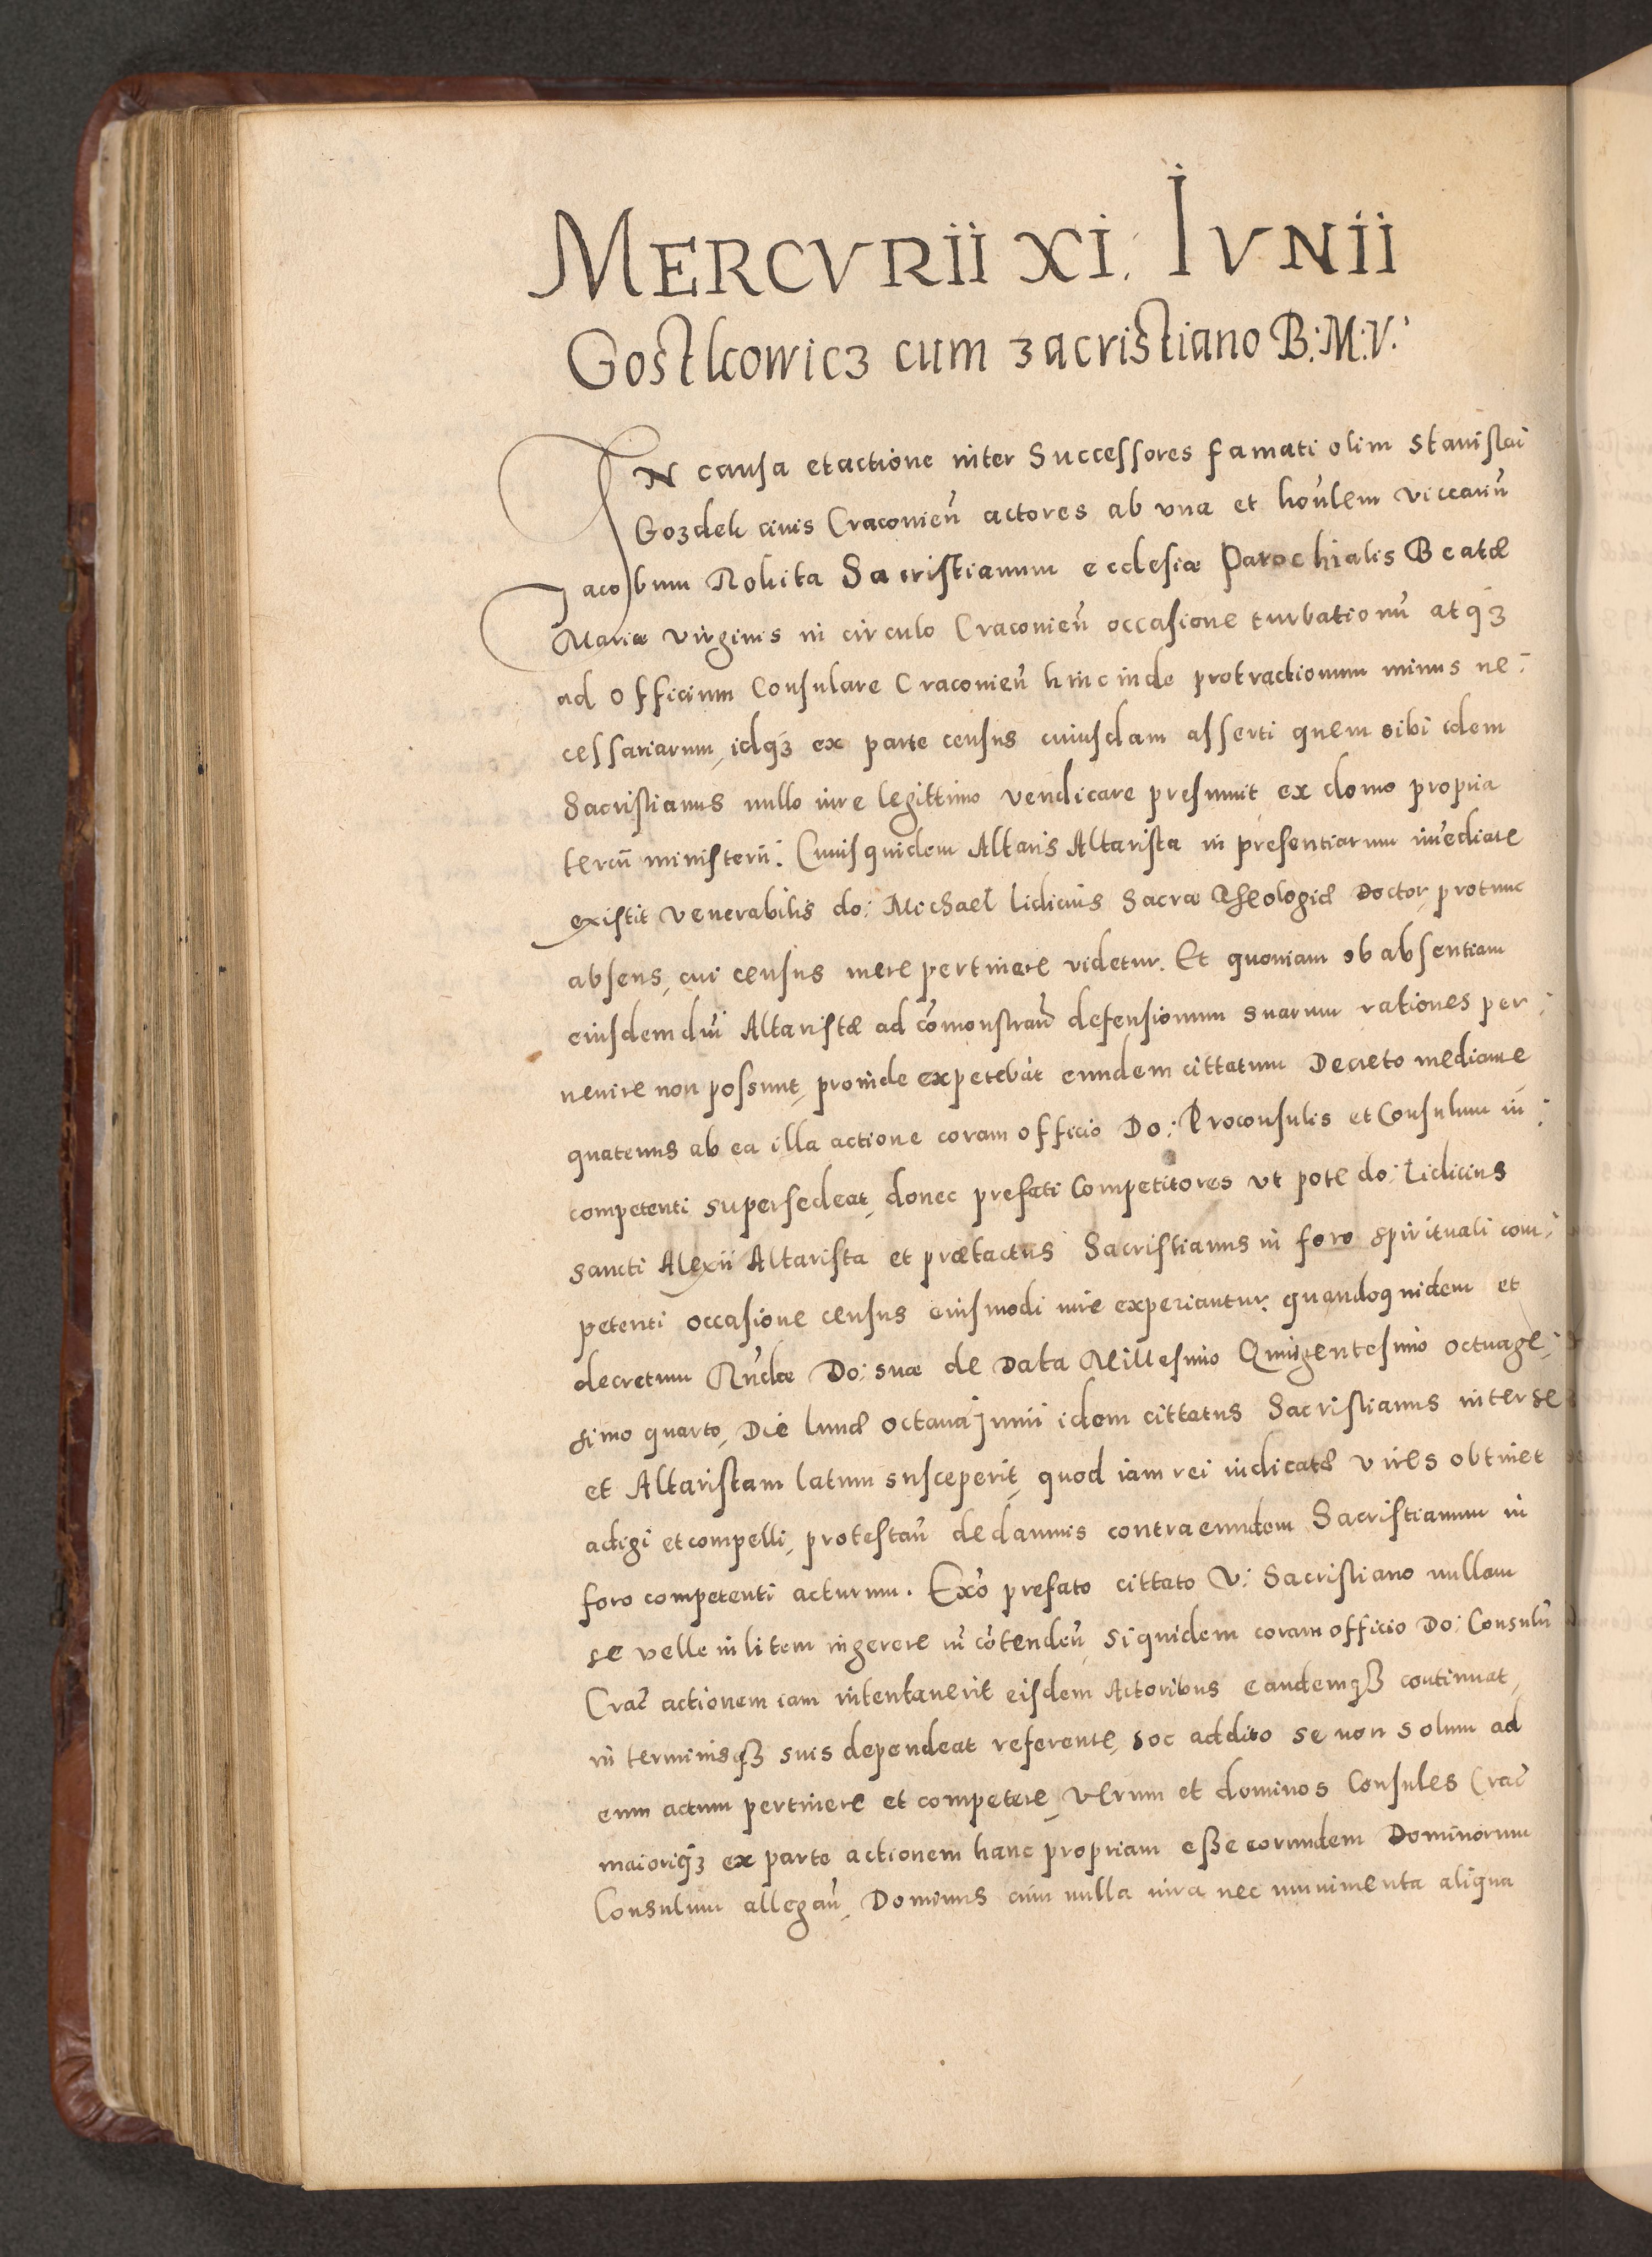 MERCVRII XI. IVNII
Gostkowicz cum zacristiano B: M: V:
IN causa et actione inter Successores famati olim Stanislai
Gozdek civis Cracovieñ actores ab vna et hoñlem viccariũ
Jacobum Rokita Sacristianum ecclesiæ Parochialis Beatæ
Mariæ virginis in circulo Cracovieñ occasione turbationũ atqȝ
ad officium Consulare Cracovieñ hinc inde protractionum minus ne:
cessariarum, idqȝ ex parte census cuiusdam asserti quem sibi idem
Sacristianus nullo iure legittimo vendicare presumit ex domo propria
tercii ministerii: Cuius quidem Altaris Altarista in presentiarum imediate
existit venerabilis do: Michael Lidicius Sacræ Theologiæ Doctor protunc
absens, cui census mere pertinere videtur. Et quoniam ob absentiam
eiusdem dni Altaristæ ad comonstrañ defensionum suarum rationes per:
venire non possunt, proinde expetebat eundem cittatum Decreto mediante
quatenus ab ea illa actione coram officio Do: Proconsulis et Consulum in:
competenti supersedeat, donec prefati Competitores vt pote do: Lidicius
sancti Alexii Altarista et prætactus Sacristianus in foro spirituali com:
petenti occasione census eiusmodi iure experiantur. quandoquidem et
decretum Rndæ Do: suæ de Data Millesimo Quingentesimo octuage:
simo quarto, Die lunæ octava Junii idem cittatus Sacristianus inter se
et Altaristam latum susceperit, quod iam rei iudicatæ vires obtinet
adigi et compelli, protestañ de damnis contra eundem Sacristianum in
foro competenti acturum. Exo prefato cittato V: Sacristiano nullam
se velle in litem ingerere in cõtendeñ, siquidem coram officio Do: Consulũ
Crac̃ actionem iam intentaverit eisdem Actoribus eandemqȝ continuat,
in terminisqȝ suis dependeat referente, hoc addito se non solum ad
eum actum pertinere et competere, verum et dominos Consules Crac̃
maioriqȝ ex parte actionem hanc propriam esse eorundem Dominorum
Consulum allegañ, Dominus cum nulla iura nec munimenta aliqua